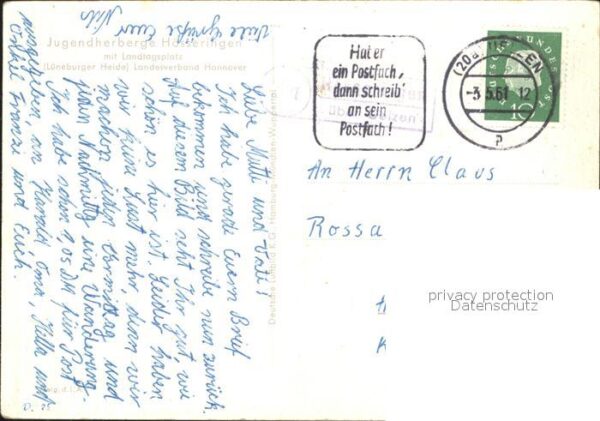 Jugendherberge Hösseringen
mit Landtagsplatz
(Lüneburger Heide) Landesverband Hannover
Liebe Mutti und Vati!
Ich habe gerade Euern Brief
bekommen und schreibe nun zurück.
Auf diesem Bild seht Ihr gut, wie
schön es hier ist. Leider haben
wir keine Lust mehr, denn wir
machen jeden Vormittag und
jeden Nachmittag eine Wanderung.
Ich habe schon 1,05 DM für Post
ausgegeben an Harald, Oma, Killa und
Onkel Franzi und Euch.
Viele Grüße Euer
Nils
Deutsche Luftbild K.G. Hamburg-München-Wuppertal
Hat er
ein Postfach,
dann schreib'
an sein
Postfach!
(20a) UELZEN
-3.5.61 12
P
DEUTSCHE BUNDESPOST
10
über Uelzen
An Herrn Claus
Rossa
privacy protection
Datenschutz